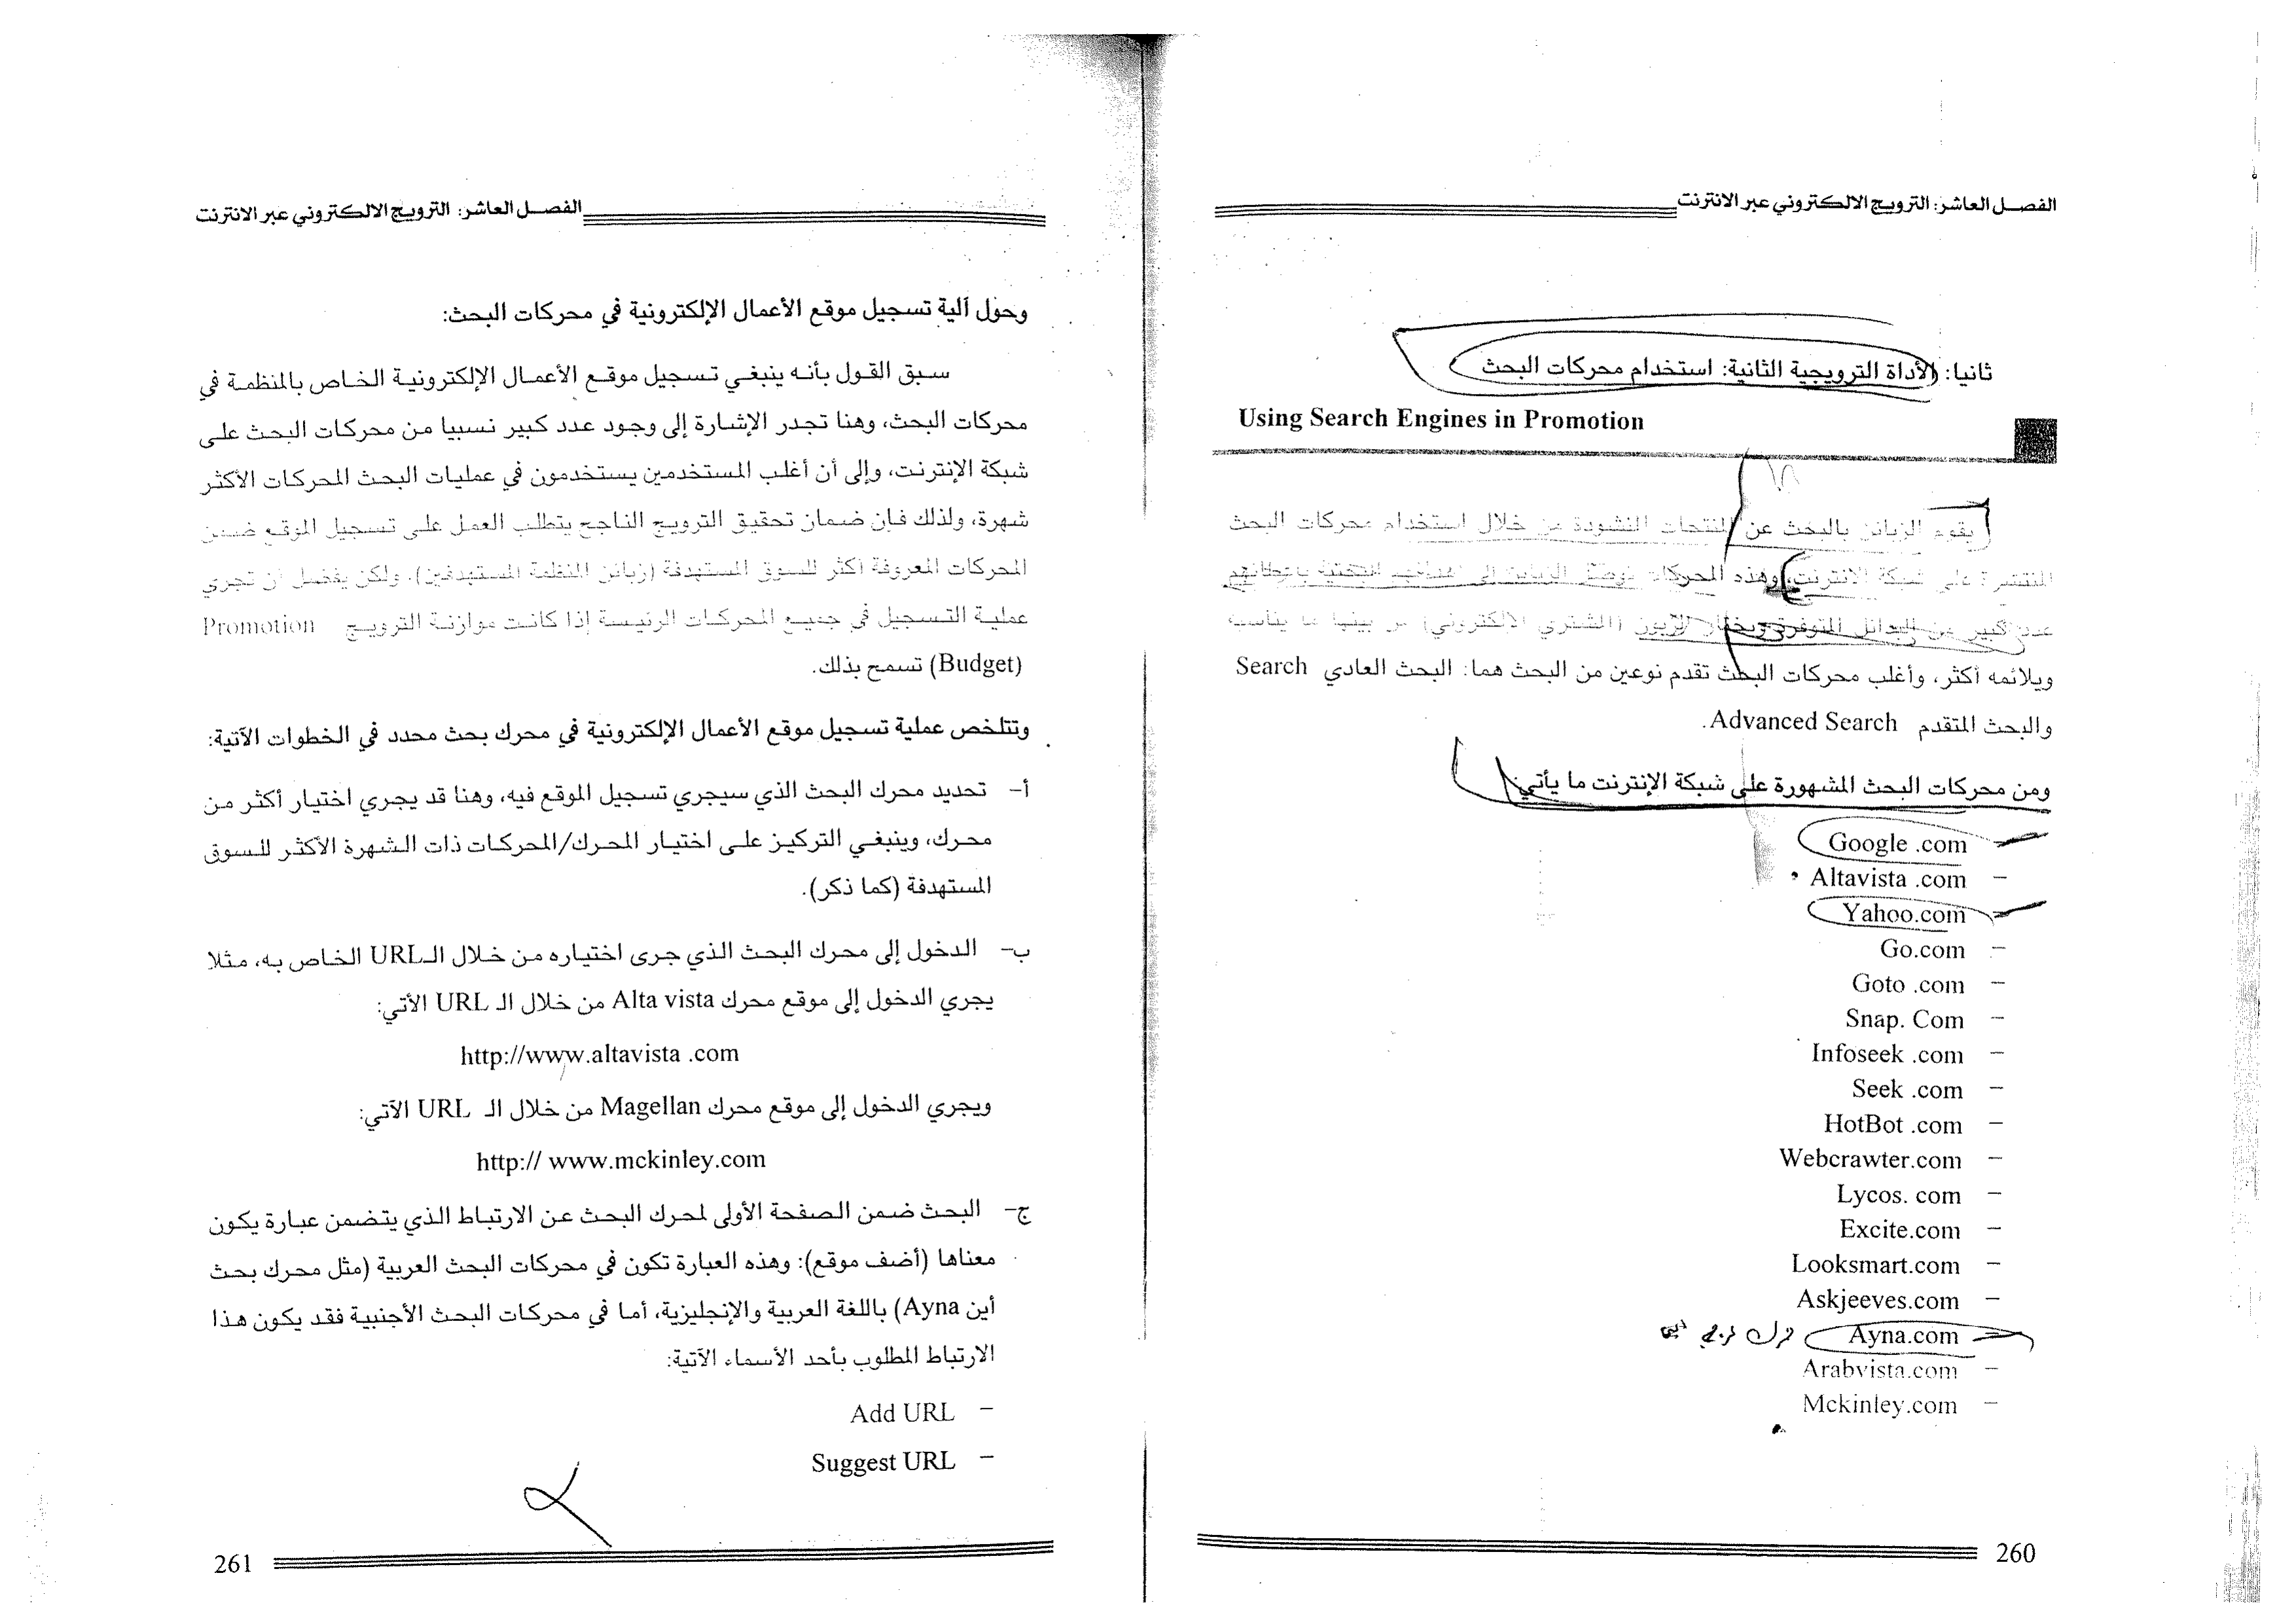 الفصل العاشر: الترويج الالكتروني عبر الانترنت
ثانيا: الأداة الترويجية الثانية: استخدام محركات البحث
Using Search Engines in Promotion
يقوم الزبائن بالبحث عن المنتجات المنشودة من خلال استخدام محركات البحث
المنتشرة على شبكة الانترنت، وهذه المحركات توصل الزبائن إلى
عدد كبير من البدائل المتوفرة ويختار الزبون (المشتري الالكتروني) من بينها ما يناسبه
ويلائمه أكثر، وأغلب محركات البحث تقدم نوعين من البحث هما: البحث العادي Search
والبحث المتقدم Advanced Search.
ومن محركات البحث المشهورة على شبكة الإنترنت ما يأتي:
Google .com
– Altavista .com
Yahoo.com
– Go.com
– Goto .com
– Snap. Com
– Infoseek .com
– Seek .com
– HotBot .com
– Webcrawter.com
– Lycos. com
– Excite.com
– Looksmart.com
– Askjeeves.com
Ayna.com
– Arabvista.com
– Mckinley.com
260
الفصل العاشر: الترويج الالكتروني عبر الانترنت
وحول آلية تسجيل موقع الأعمال الإلكترونية في محركات البحث:
سبق القول بأنه ينبغي تسجيل موقع الأعمال الإلكترونية الخاص بالمنظمة في
محركات البحث، وهنا تجدر الإشارة إلى وجود عدد كبير نسبيا من محركات البحث على
شبكة الإنترنت، وإلى أن أغلب المستخدمين يستخدمون في عمليات البحث المحركات الأكثر
شهرة، ولذلك فإن ضمان تحقيق الترويج الناجح يتطلب العمل على تسجيل الموقع ضمن
المحركات المعروفة أكثر للسوق المستهدفة (زبائن المنظمة المستهدفين). ولكن يفضل أن تجري
عملية التسجيل في جميع المحركات الرئيسة إذا كانت موازنة الترويج Promotion
(Budget) تسمح بذلك.
وتتلخص عملية تسجيل موقع الأعمال الإلكترونية في محرك بحث محدد في الخطوات الآتية:
أ– تحديد محرك البحث الذي سيجري تسجيل الموقع فيه، وهنا قد يجري اختيار أكثر من
محرك، وينبغي التركيز على اختيار المحرك/المحركات ذات الشهرة الأكثر للسوق
المستهدفة (كما ذكر).
ب– الدخول إلى محرك البحث الذي جرى اختياره من خلال الـURL الخاص به، مثلا
يجري الدخول إلى موقع محرك Alta vista من خلال الـ URL الأتي:
http://www.altavista .com
ويجري الدخول إلى موقع محرك Magellan من خلال الـ URL الآتي:
http:// www.mckinley.com
ج– البحث ضمن الصفحة الأولى لمحرك البحث عن الارتباط الذي يتضمن عبارة يكون
معناها (أضف موقع): وهذه العبارة تكون في محركات البحث العربية (مثل محرك بحث
أين Ayna) باللغة العربية والإنجليزية، أما في محركات البحث الأجنبية فقد يكون هذا
الارتباط المطلوب بأحد الأسماء الآتية:
– Add URL
– Suggest URL
261